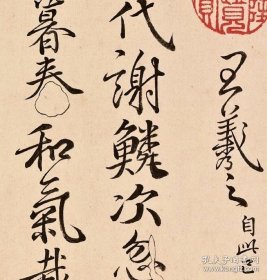 王羲之 自此
代謝鱗次忽
暮春和氣載